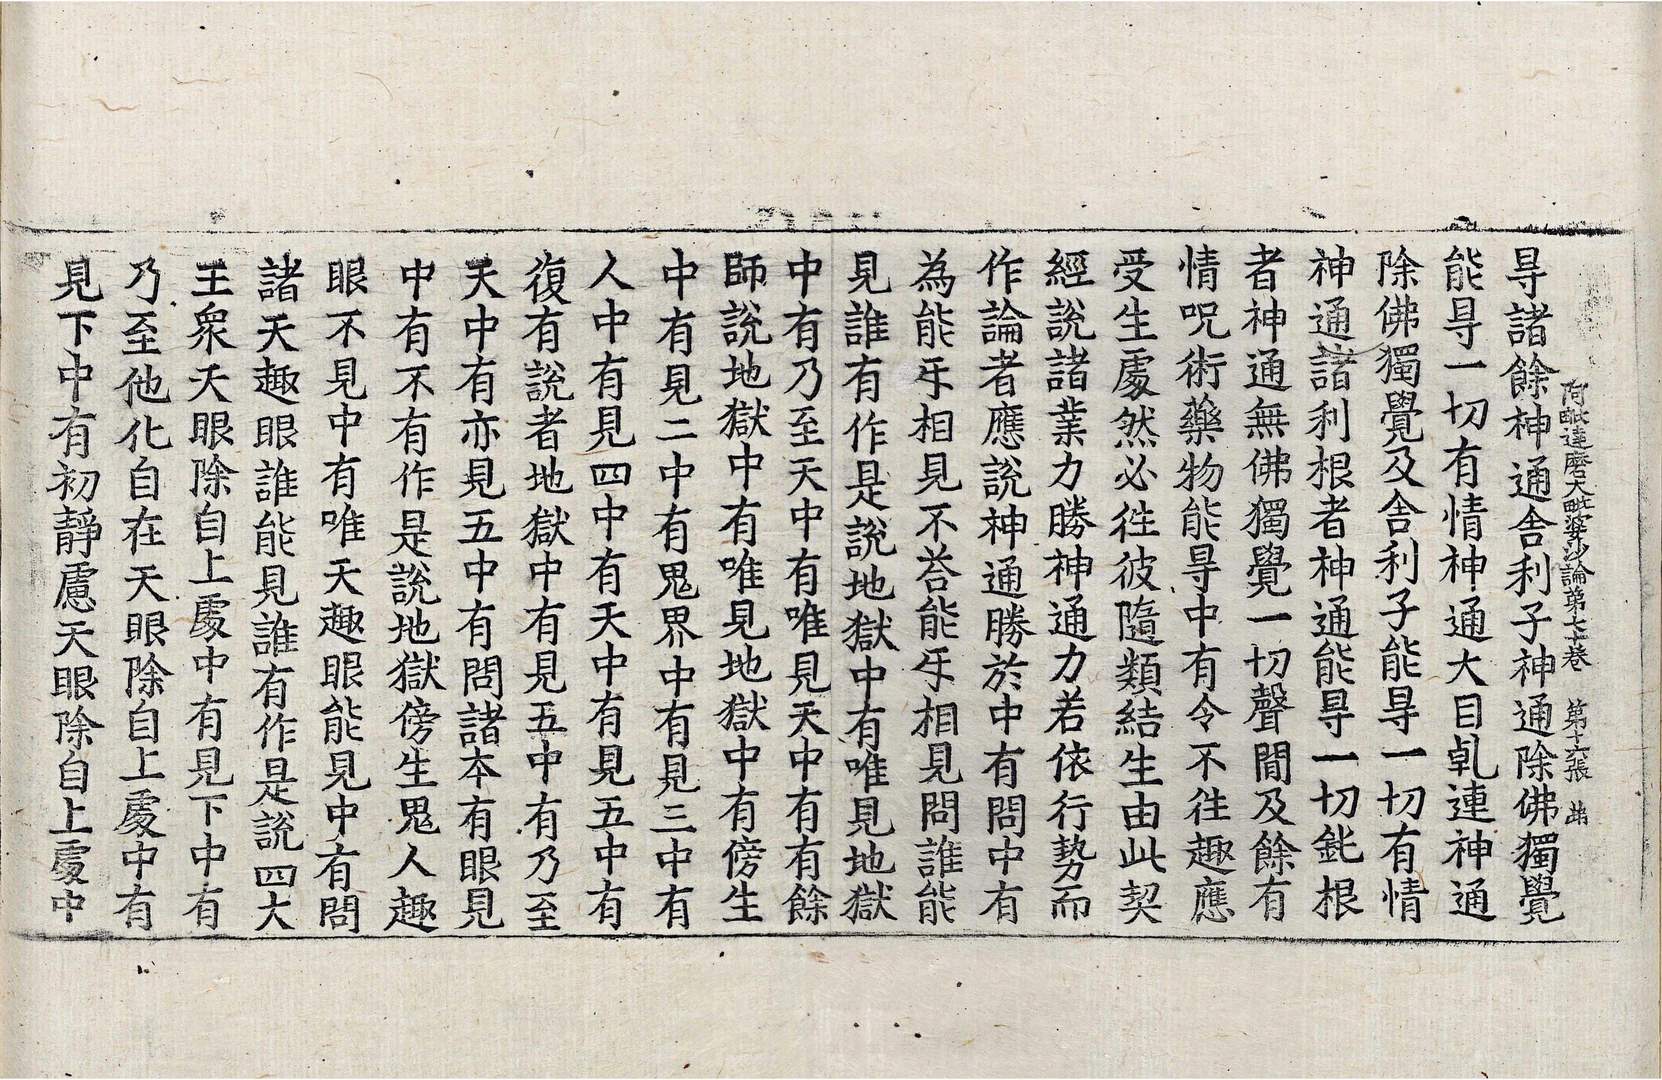 阿毗達磨大毗婆沙論第七十卷 第十六張
㝵諸餘神通舍利子神通除佛獨覺
能㝵一切有情神通大目乹連神通
除佛獨覺及舍利子能㝵一切有情
神通諸利根者神通能㝵一切鈍根
者神通無佛獨覺一切聲聞及餘有
情呪術藥物能㝵中有令不往趣應
受生處然必徃彼隨類結生由此契
經說諸業力勝神通力若依行勢而
作論者應說神通勝於中有問中有
為能㸦相見不荅能㸦相見問誰能
見誰有作是說地獄中有唯見地獄
中有乃至天中有唯見天中有有餘
師說地獄中有唯見地獄中有傍生
中有見二中有鬼界中有見三中有
人中有見四中有天中有見五中有
復有說者地獄中有見五中有乃至
天中有亦見五中有問諸本有眼見
中有不有作是說地獄傍生鬼人趣
眼不見中有唯天趣眼能見中有問
諸天趣眼誰能見誰有作是說四大
王衆天眼除自上處中有見下中有
乃至他化自在天眼除自上處中有
見下中有初靜慮天眼除自上處中